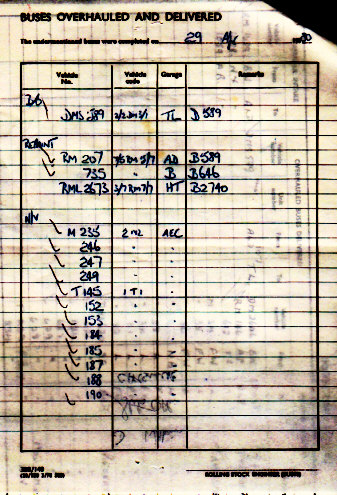 BUSES OVERHAULED AND DELIVERED
The undermentioned buses were completed on 29 1980
Vehicle No. Vehicle code Garage Remarks
DMS 589 TL D589
REPAINT
RM 207 AD B589
735 B B646
RML 2673 HT B2740
N/V
M 235 AEC
246 " "
247 " "
249 " "
T 145 1 T1 "
152 " "
153 " "
184 " "
185 " "
187 " "
188
190 "
ROLLING STOCK ENGINEER (BUSES)